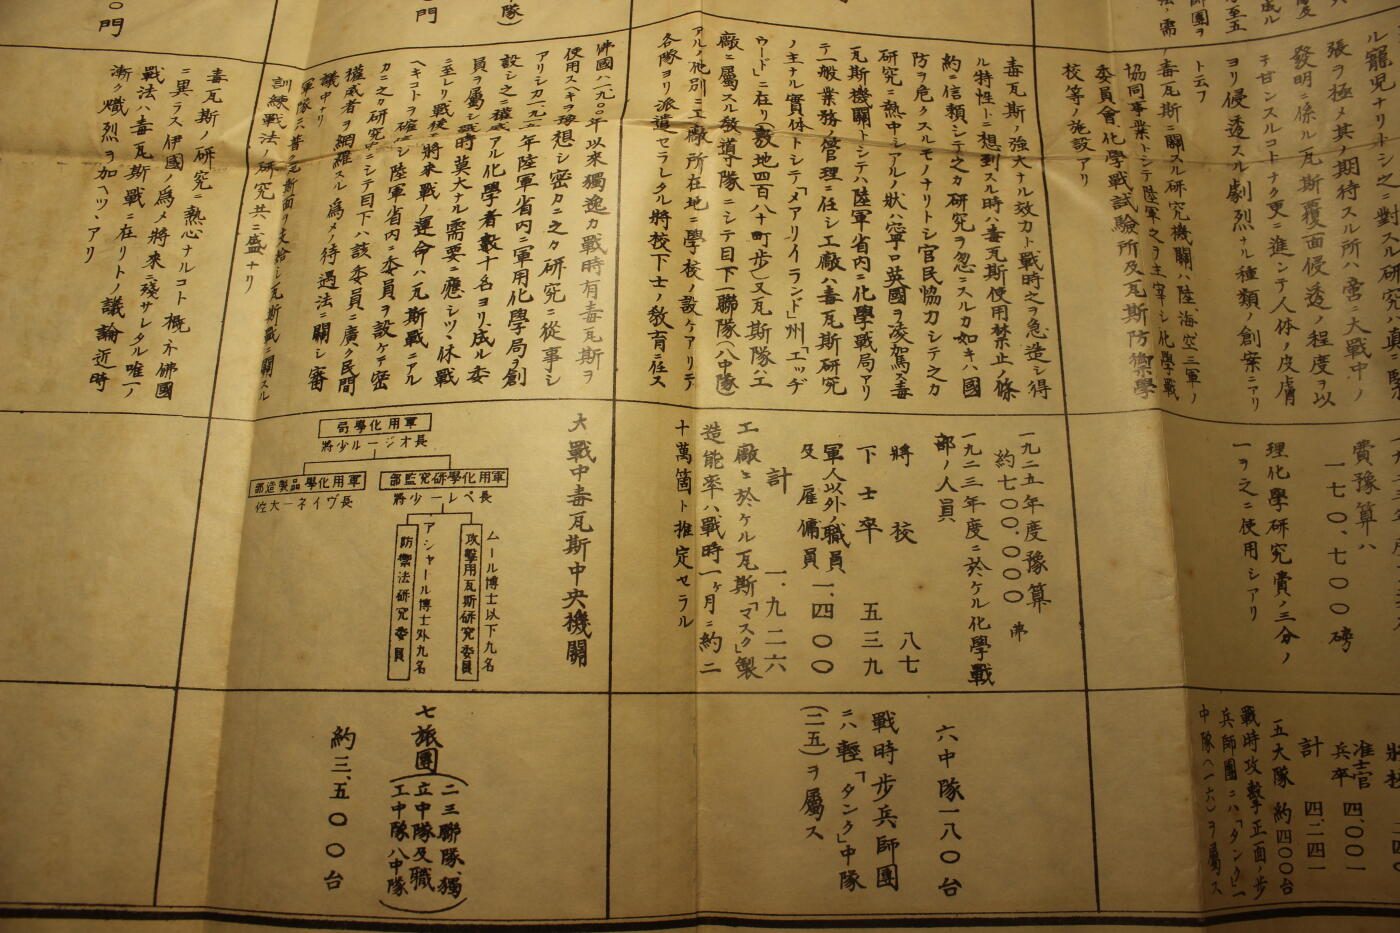 ル寵兒ナリトシ之ニ對スル研究
張ヲ極メ其ノ期待スル所ハ啻ニ大戰中ノ
發明ニ係ル瓦斯覆面侵透ノ程度ヲ以
テ甘ンスルコトナク更ニ進ンテ人体ノ皮膚
ヨリ侵透スル劇烈ナル種類ノ創案ニアリ
ト云フ
毒瓦斯ニ關スル研究機關ハ陸、海、空三軍ノ
協同事業トシテ陸軍之ヲ主宰シ化學戰
委員會化學戰試驗所及瓦斯防禦學
校等ノ施設アリ
毒瓦斯ノ強大ナル效力ト戰時之ヲ急造シ得
ル特性トニ想到スル時ハ毒瓦斯使用禁止ノ條
約ニ信頼シテ之カ研究ヲ忽ニスルカ如キハ國
防ヲ危クスルモノナリトシ官民協力シテ之カ
研究ニ熱中シアルノ狀ハ寧ロ英國ヲ凌駕ス毒
瓦斯機關トシテハ陸軍省内ニ化學戰局アリ
テ一般業務ノ管理ニ任シ工廠ハ毒瓦斯研究
ノ主ナル實体トシテ「メアリイランド」州「エッヂ
ウード」ニ在リ(敷地四百八十町歩)又瓦斯隊ハ工
廠ニ屬スル敎導隊ニシテ目下一聯隊(八中隊)
アルノ他別ニ工廠所在地ニ學校ノ設ケアリテ
各隊ヨリ派遣セラレタル將校下士ノ敎育ニ任ス
佛國ハ一九〇〇年以來獨逸カ戰時有毒瓦斯ヲ
使用スヘキヲ豫想シ密カニ之カ研究ニ從事シ
アリシカ一九一五年陸軍省内ニ軍用化學局ヲ創
設シ之ニ權威アル化學者數十名ヨリ成ル委
員ヲ屬シ戰時莫大ナル需要ニ應シツヽ休戰
ニ至レリ戰後ハ將來戰ノ運命ハ瓦斯戰ニアル
ヘキコトヲ確信シ陸軍省内ニ委員ヲ設ケテ密
カニ之カ研究中ニシテ目下ハ該委員ニ廣ク民間
權威者ヲ網羅スル爲メノ待遇法ニ關シ審
議中ナリ
軍隊ニハ普ク瓦斯面ヲ支給シ瓦斯戰ニ關スル
訓練戰法ノ研究共ニ盛ナリ
毒瓦斯ノ研究ニ熱心ナルコト概ネ佛國
ニ異ラス伊國ノ爲メ將來ニ殘サレタル唯一ノ
戰法ハ毒瓦斯戰ニ在リトノ議論近時
漸ク熾烈ヲ加ヘツヽアリ
費豫算ハ
一七〇、七〇〇磅
理化學研究費ノ三分ノ
一ヲ之ニ使用シアリ
一九二五年度豫算
約七〇〇、〇〇〇弗
一九二三年度ニ於ケル化學戰
部ノ人員
將校 八七
下士卒 五三九
軍人以外ノ職員
及雇傭員 一、四〇〇
計 一、九二六
工廠ニ於ケル瓦斯「マスク」製
造能率ハ戰時一ヶ月ニ約二
十萬箇ト推定セラル
大戰中毒瓦斯中央機關
局學化用軍
將少ルージオ長
部監究研學化用軍
將少ーレペ長
部造製品學化用軍
佐大ーネイヴ長
ムール博士以下九名
攻擊用瓦斯研究委員
アシャール博士外九名
防禦法研究委員
准士官 四、〇〇一
兵卒
計 四、二四一
五大隊 約四〇〇台
戰時攻擊正面ノ歩
兵師團ニハ「タンク」一
中隊(一六)ヲ屬ス
六中隊一八〇台
戰時歩兵師團
ニハ輕「タンク」中隊
(二五)ヲ屬ス
七旅團(二三聯隊、獨
立中隊及職
工中隊八中隊)
約三、五〇〇台